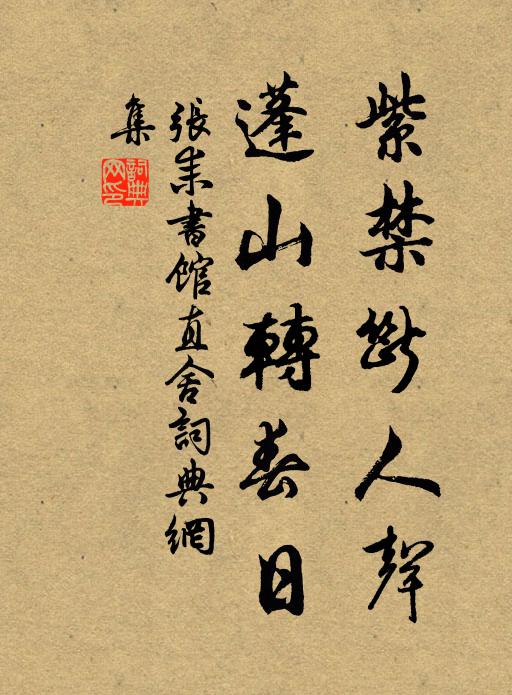 紫禁斷人聲
蓬山轉春日
張耒書館直舍詞典網
集
詞典
网印